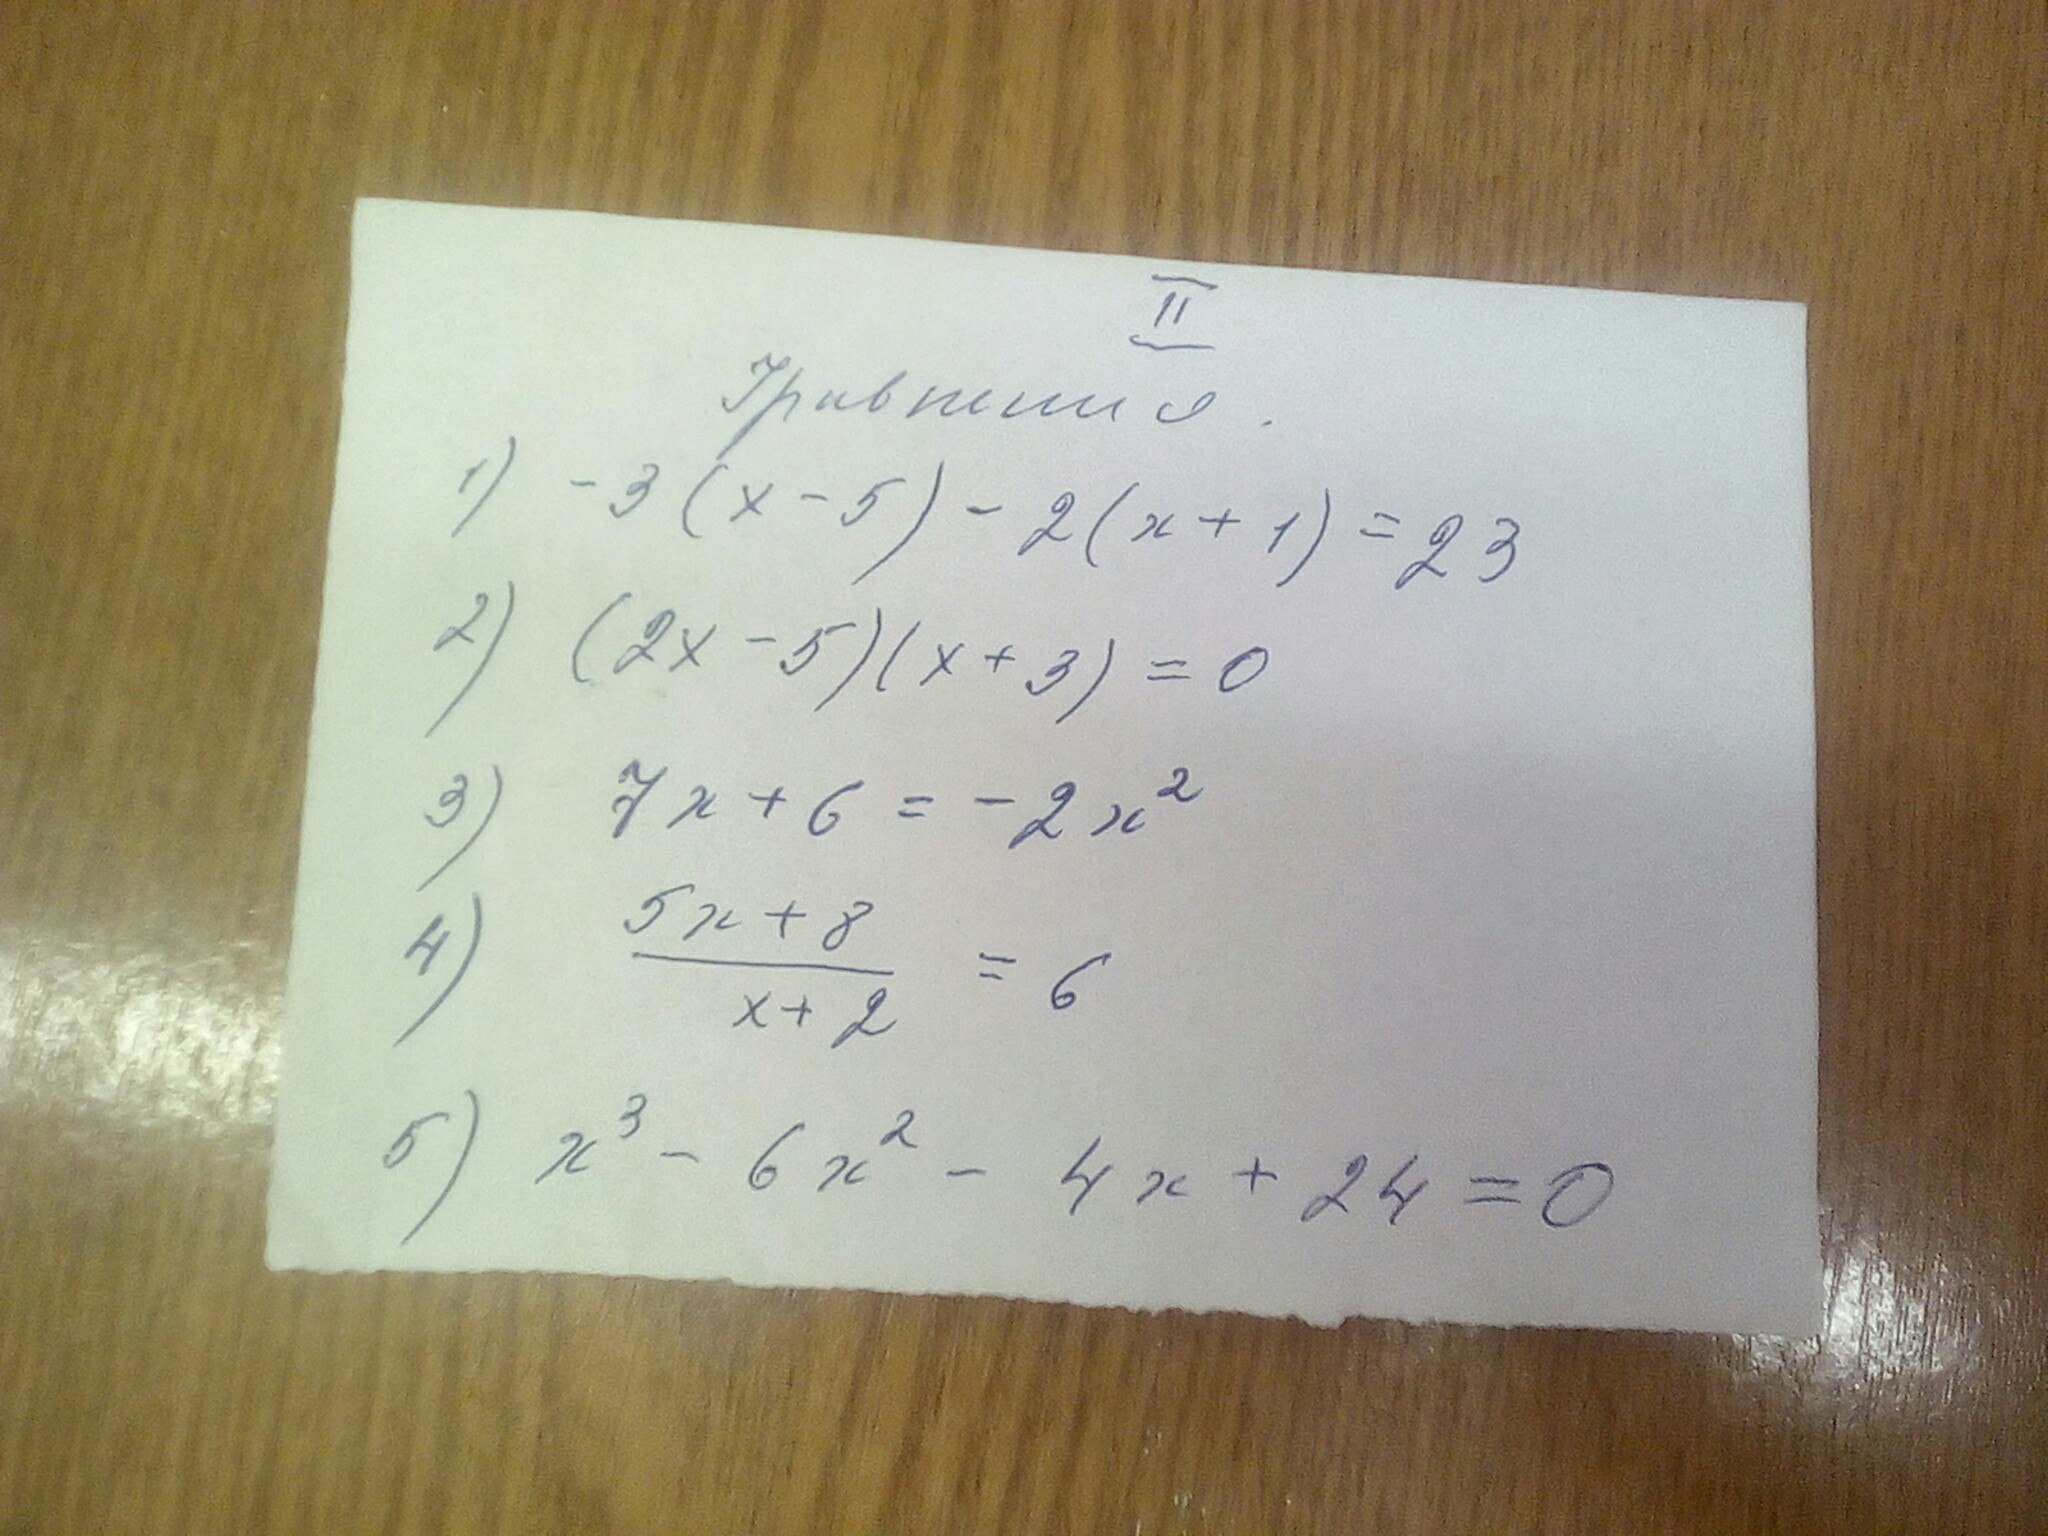 II
Уравнения.
1) -3(x-5)-2(x+1)=23
2) (2x-5)(x+3)=0
3) 7x+6=-2x²
4) (5x+8)/(x+2) = 6
5) x³-6x²-4x+24=0